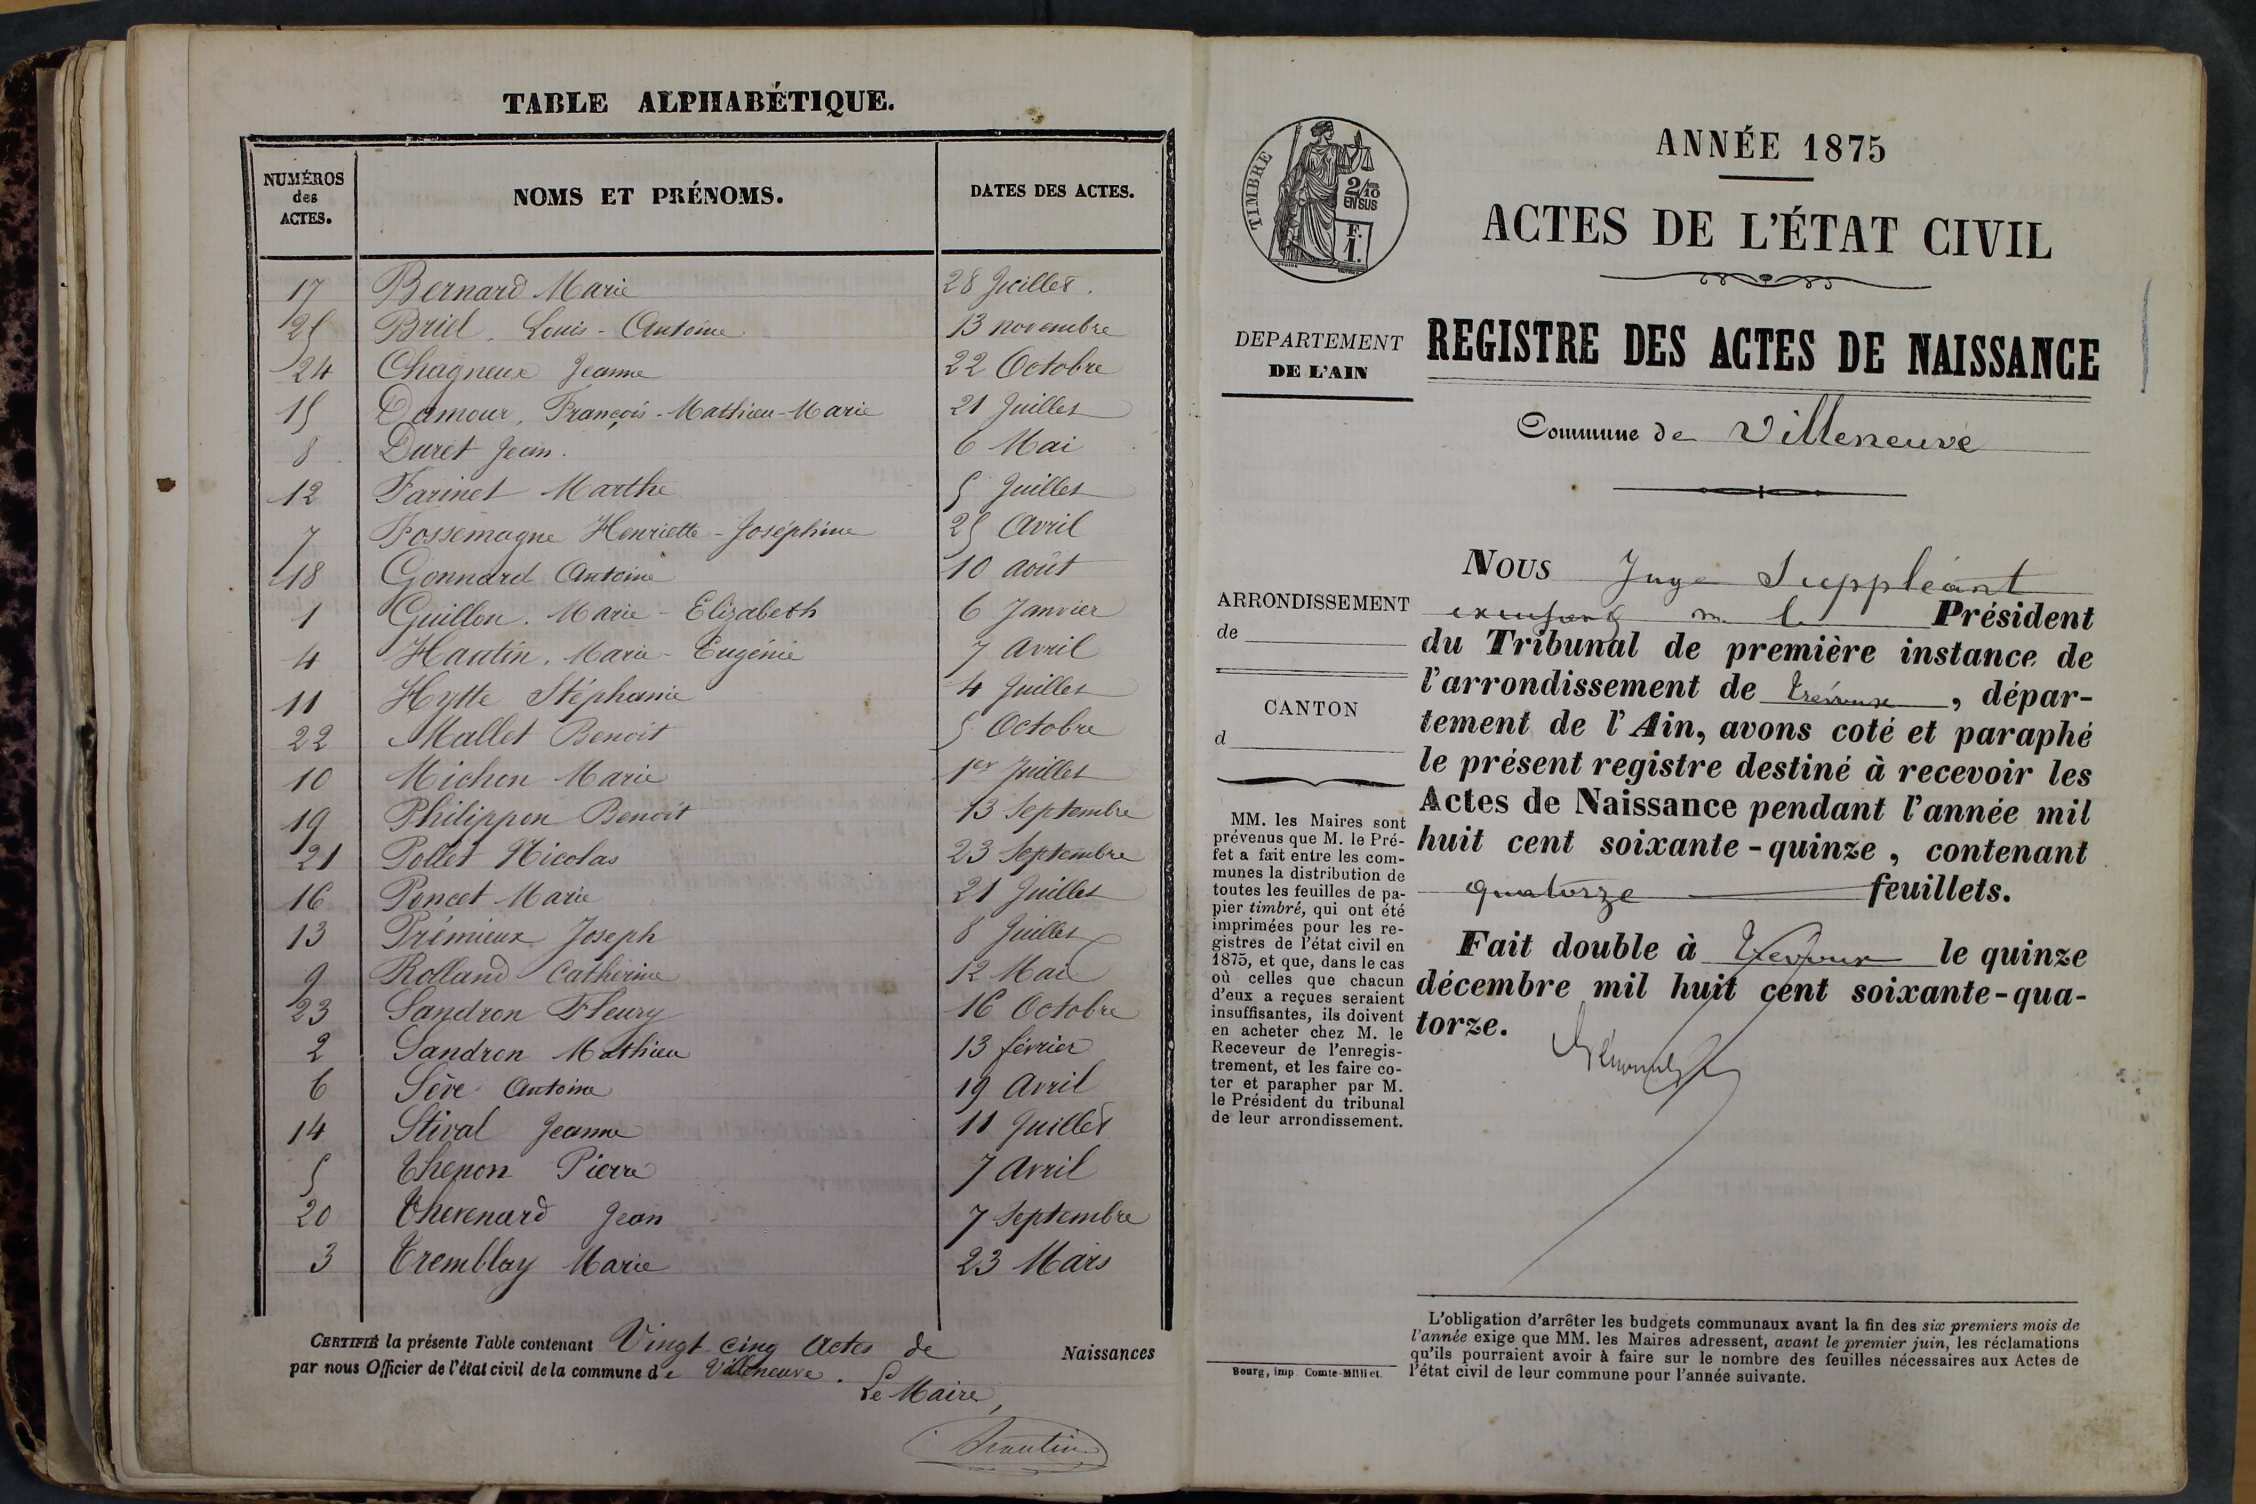 TABLE ALPHABÉTIQUE.
NUMÉROS des ACTES. NOMS ET PRÉNOMS. DATES DES ACTES.
17 Bernard Marie 28 Juillet.
25 Briel. Louis-Antoine 13 novembre
24 Chagneux Jeanne 22 Octobre
15 Damour, François-Mathieu-Marie 21 Juillet
8 Duret Jean. 6 Mai
12 Farinet Marthe 5 Juillet
7 Fossemagne Henriette-Joséphine 25 Avril
18 Gonnard Antoine 10 août
1 Guillon. Marie-Elizabeth 6 Janvier
4 Hautin. Marie-Eugénie 7 Avril
11 Hytte Stéphanie 4 Juillet
22 Mallet Benoit 5 Octobre
10 Michon Marie 1er Juillet
19 Philippon Benoit 13 Septembre
21 Pollet Nicolas 23 Septembre
16 Poncet Marie 21 Juillet
13 Prémieux Joseph 8 Juillet
9 Rolland Catherine 12 Mai
23 Sandron Fleury 16 Octobre
2 Sandron Mathieu 13 février
6 Sève Antoine 19 Avril
14 Stival Jeanne 11 Juillet
5 Thenon Pierre 7 Avril
20 Thevenard Jean 7 Septembre
3 Tremblay Marie 23 Mars
CERTIFIÉ la présente Table contenant Vingt cinq Actes de Naissances
par nous Officier de l'état civil de la commune de Villeneuve.
Le Maire,
TIMBRE
2/10 EN SUS
F. 1.
ANNÉE 1875
ACTES DE L'ÉTAT CIVIL
DEPARTEMENT
DE L'AIN
REGISTRE DES ACTES DE NAISSANCE
Commune de Villeneuve
ARRONDISSEMENT
de
CANTON
d
MM. les Maires sont
prévenus que M. le Pré-
fet a fait entre les com-
munes la distribution de
toutes les feuilles de pa-
pier timbré, qui ont été
imprimées pour les re-
gistres de l'état civil en
1875, et que, dans le cas
où celles que chacun
d'eux a reçues seraient
insuffisantes, ils doivent
en acheter chez M. le
Receveur de l'enregis-
trement, et les faire co-
ter et parapher par M.
le Président du tribunal
de leur arrondissement.
Bourg, imp. Comte-Milliet.
NOUS Juge Suppléant
Président
du Tribunal de première instance de
l'arrondissement de Trévoux, dépar-
tement de l'Ain, avons coté et paraphé
le présent registre destiné à recevoir les
Actes de Naissance pendant l'année mil
huit cent soixante-quinze, contenant
quatorze feuillets.
Fait double à Trévoux le quinze
décembre mil huit cent soixante-qua-
torze.
L'obligation d'arrêter les budgets communaux avant la fin des six premiers mois de
l'année exige que MM. les Maires adressent, avant le premier juin, les réclamations
qu'ils pourraient avoir à faire sur le nombre des feuilles nécessaires aux Actes de
l'état civil de leur commune pour l'année suivante.